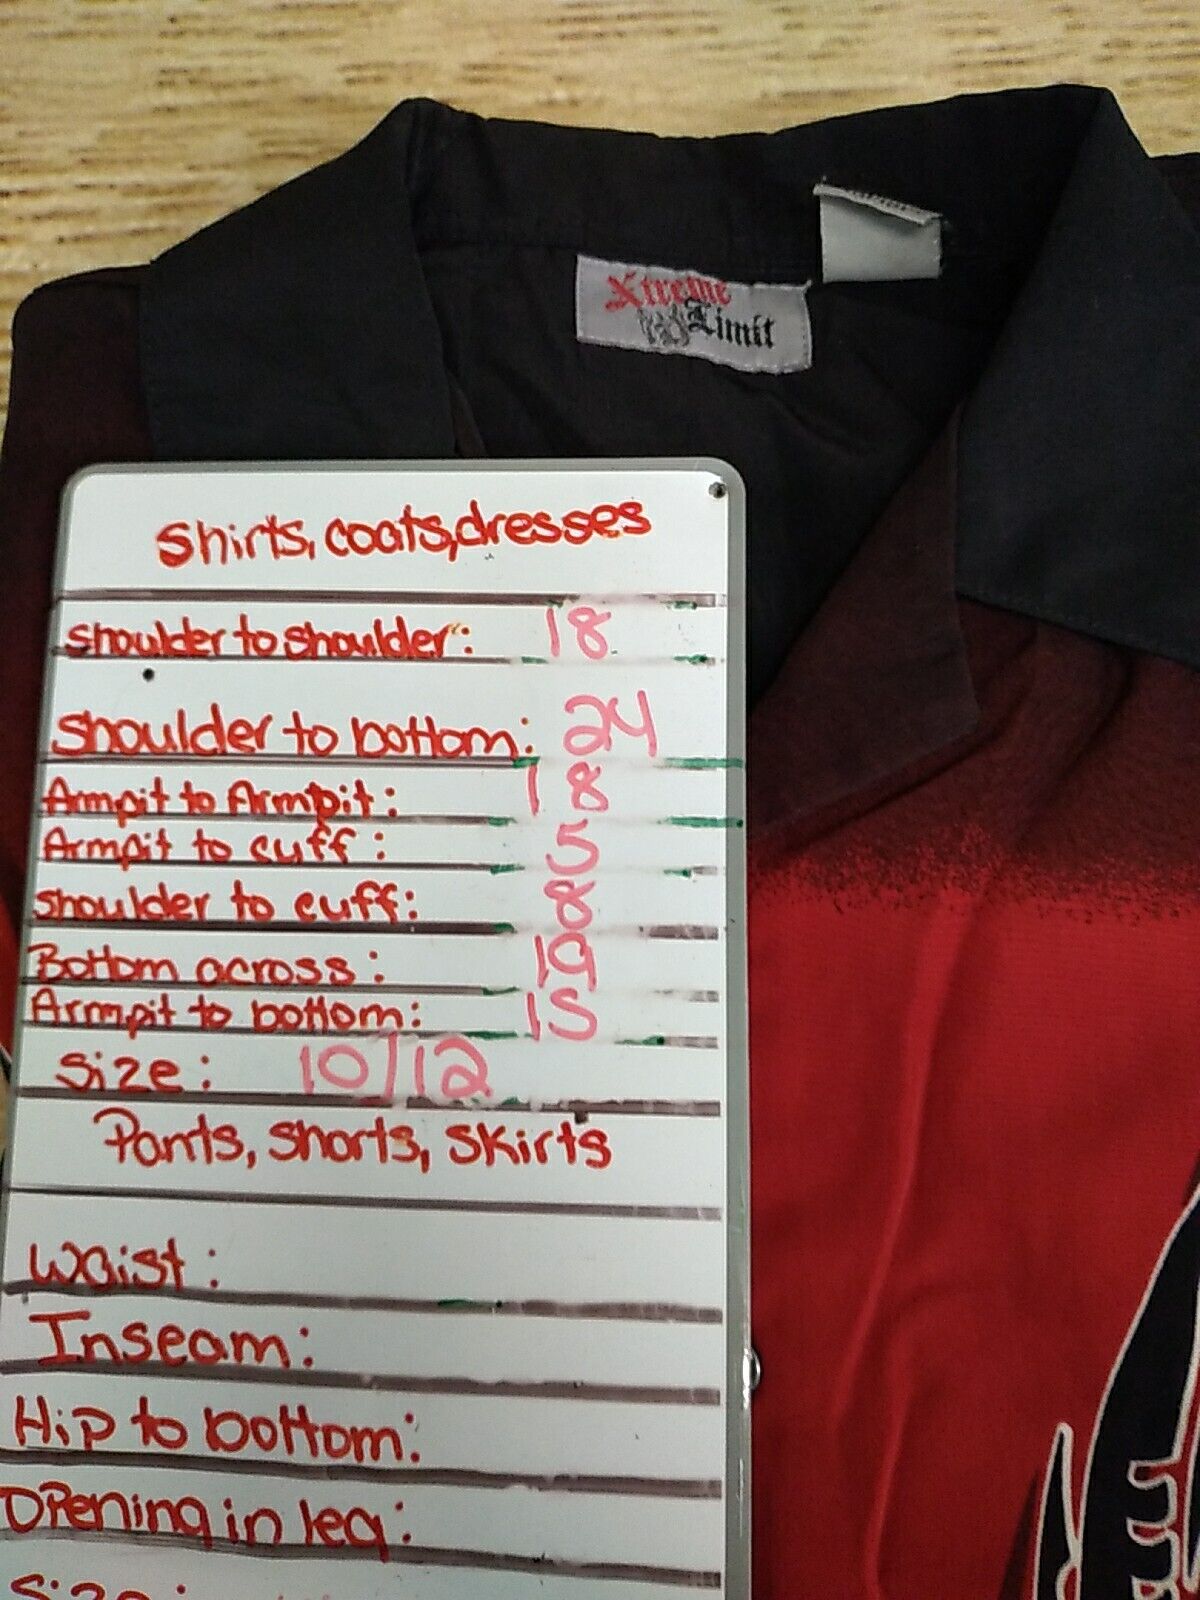 Xtreme
Limit
shirts, coats, dresses
shoulder to shoulder: 18
shoulder to bottom: 24
Armpit to Armpit: 18
Armpit to cuff: 5
shoulder to cuff: 8
Bottom across: 19
Armpit to bottom: 15
size: 10/12
Pants, shorts, skirts
Waist:
Inseam:
Hip to bottom:
Opening in leg:
Size: